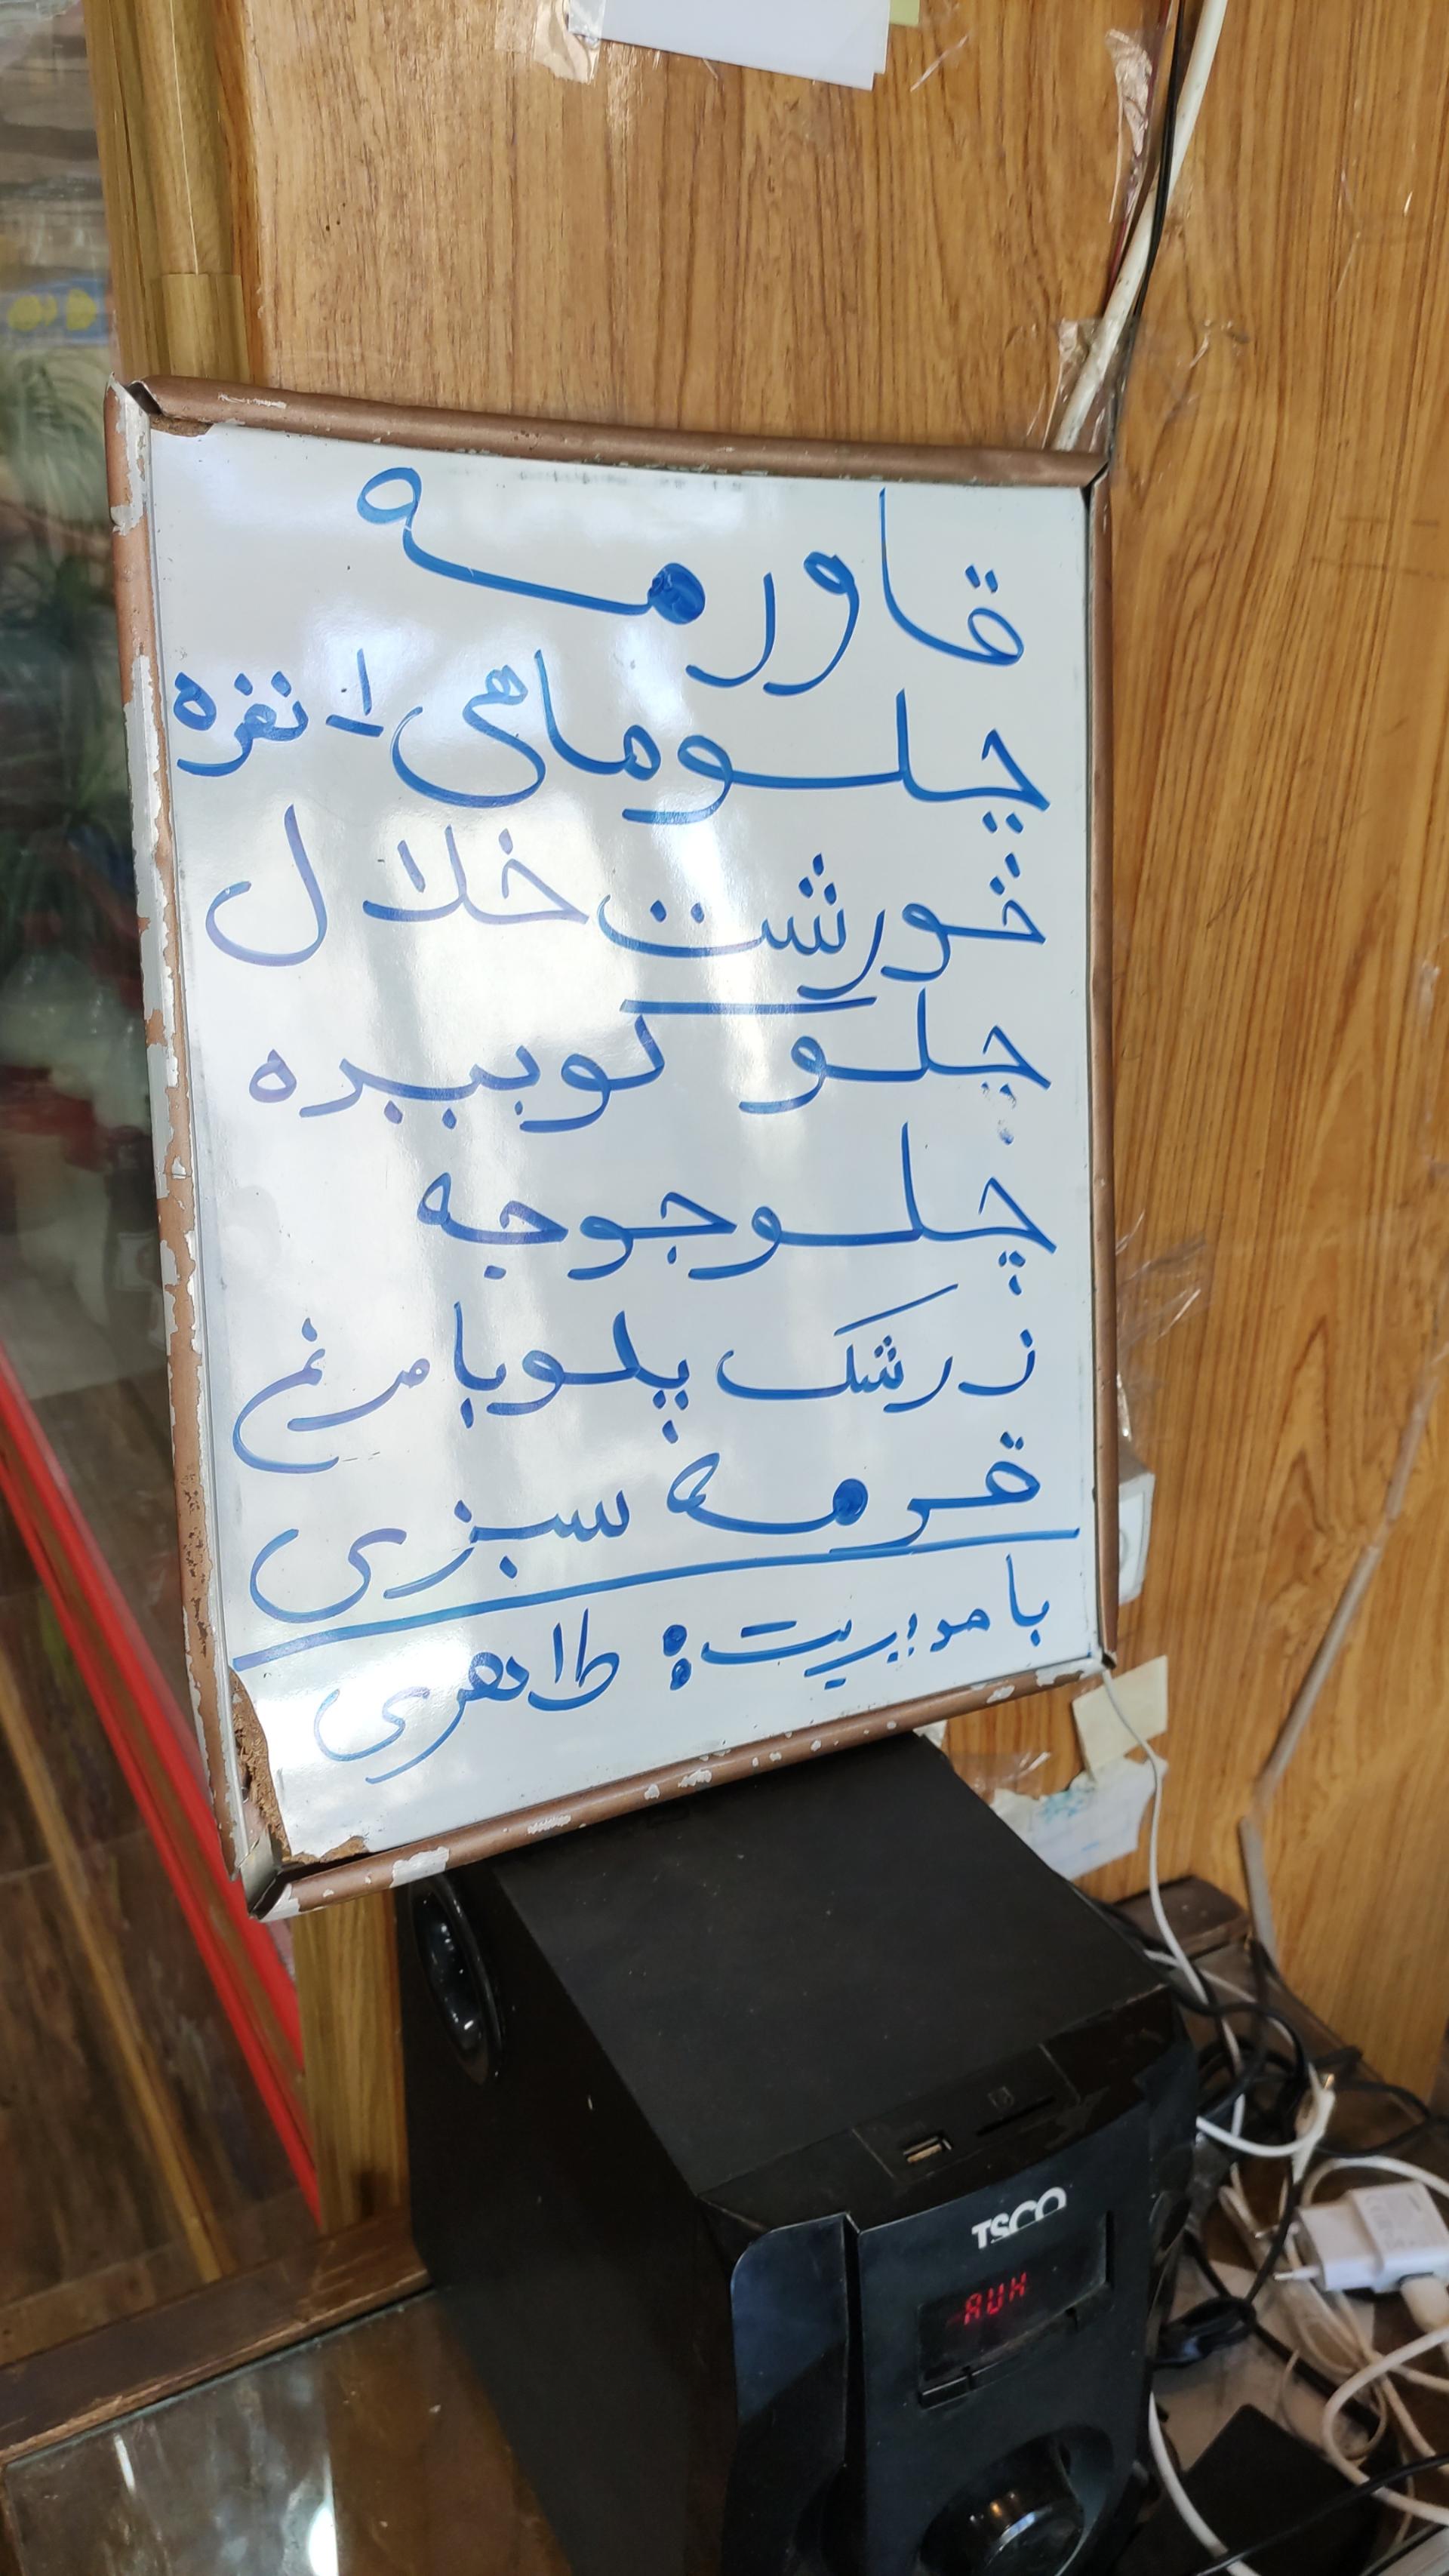 قاورمه
چلوماهی ۱ نفره
خورشت خلال
چلو کوبیده
چلوجوجه
زرشک پلو با مرغ
قرمه سبزی
بامدیریت: طاهری
TSCO
AUX